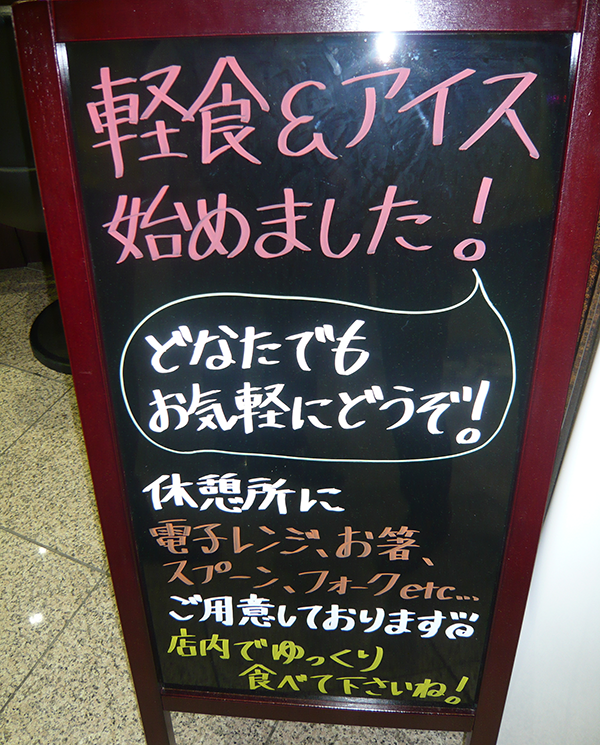 軽食&アイス
始めました!
どなたでも
お気軽にどうぞ!
休憩所に
電子レンジ、お箸、
スプーン、フォークetc...
ご用意しております
店内でゆっくり
食べて下さいね!